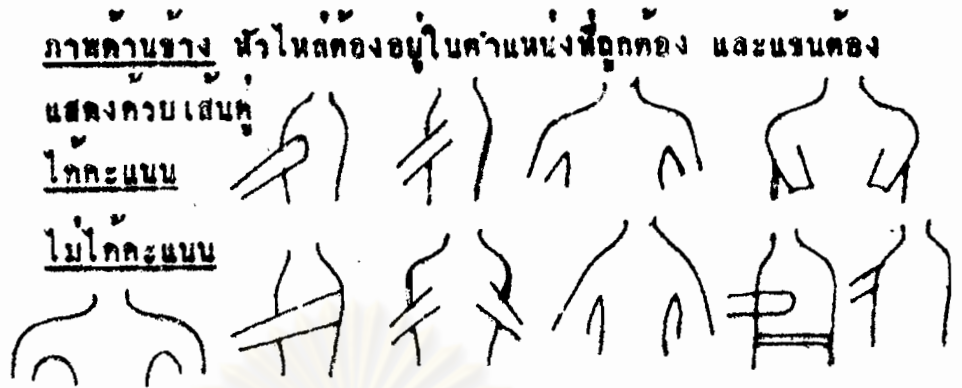 ภาพด้านข้าง หัวไหล่ต้องอยู่ในตำแหน่งที่ถูกต้อง และแขนต้อง
แสดงด้วยเส้นคู่
ได้คะแนน
ไม่ได้คะแนน